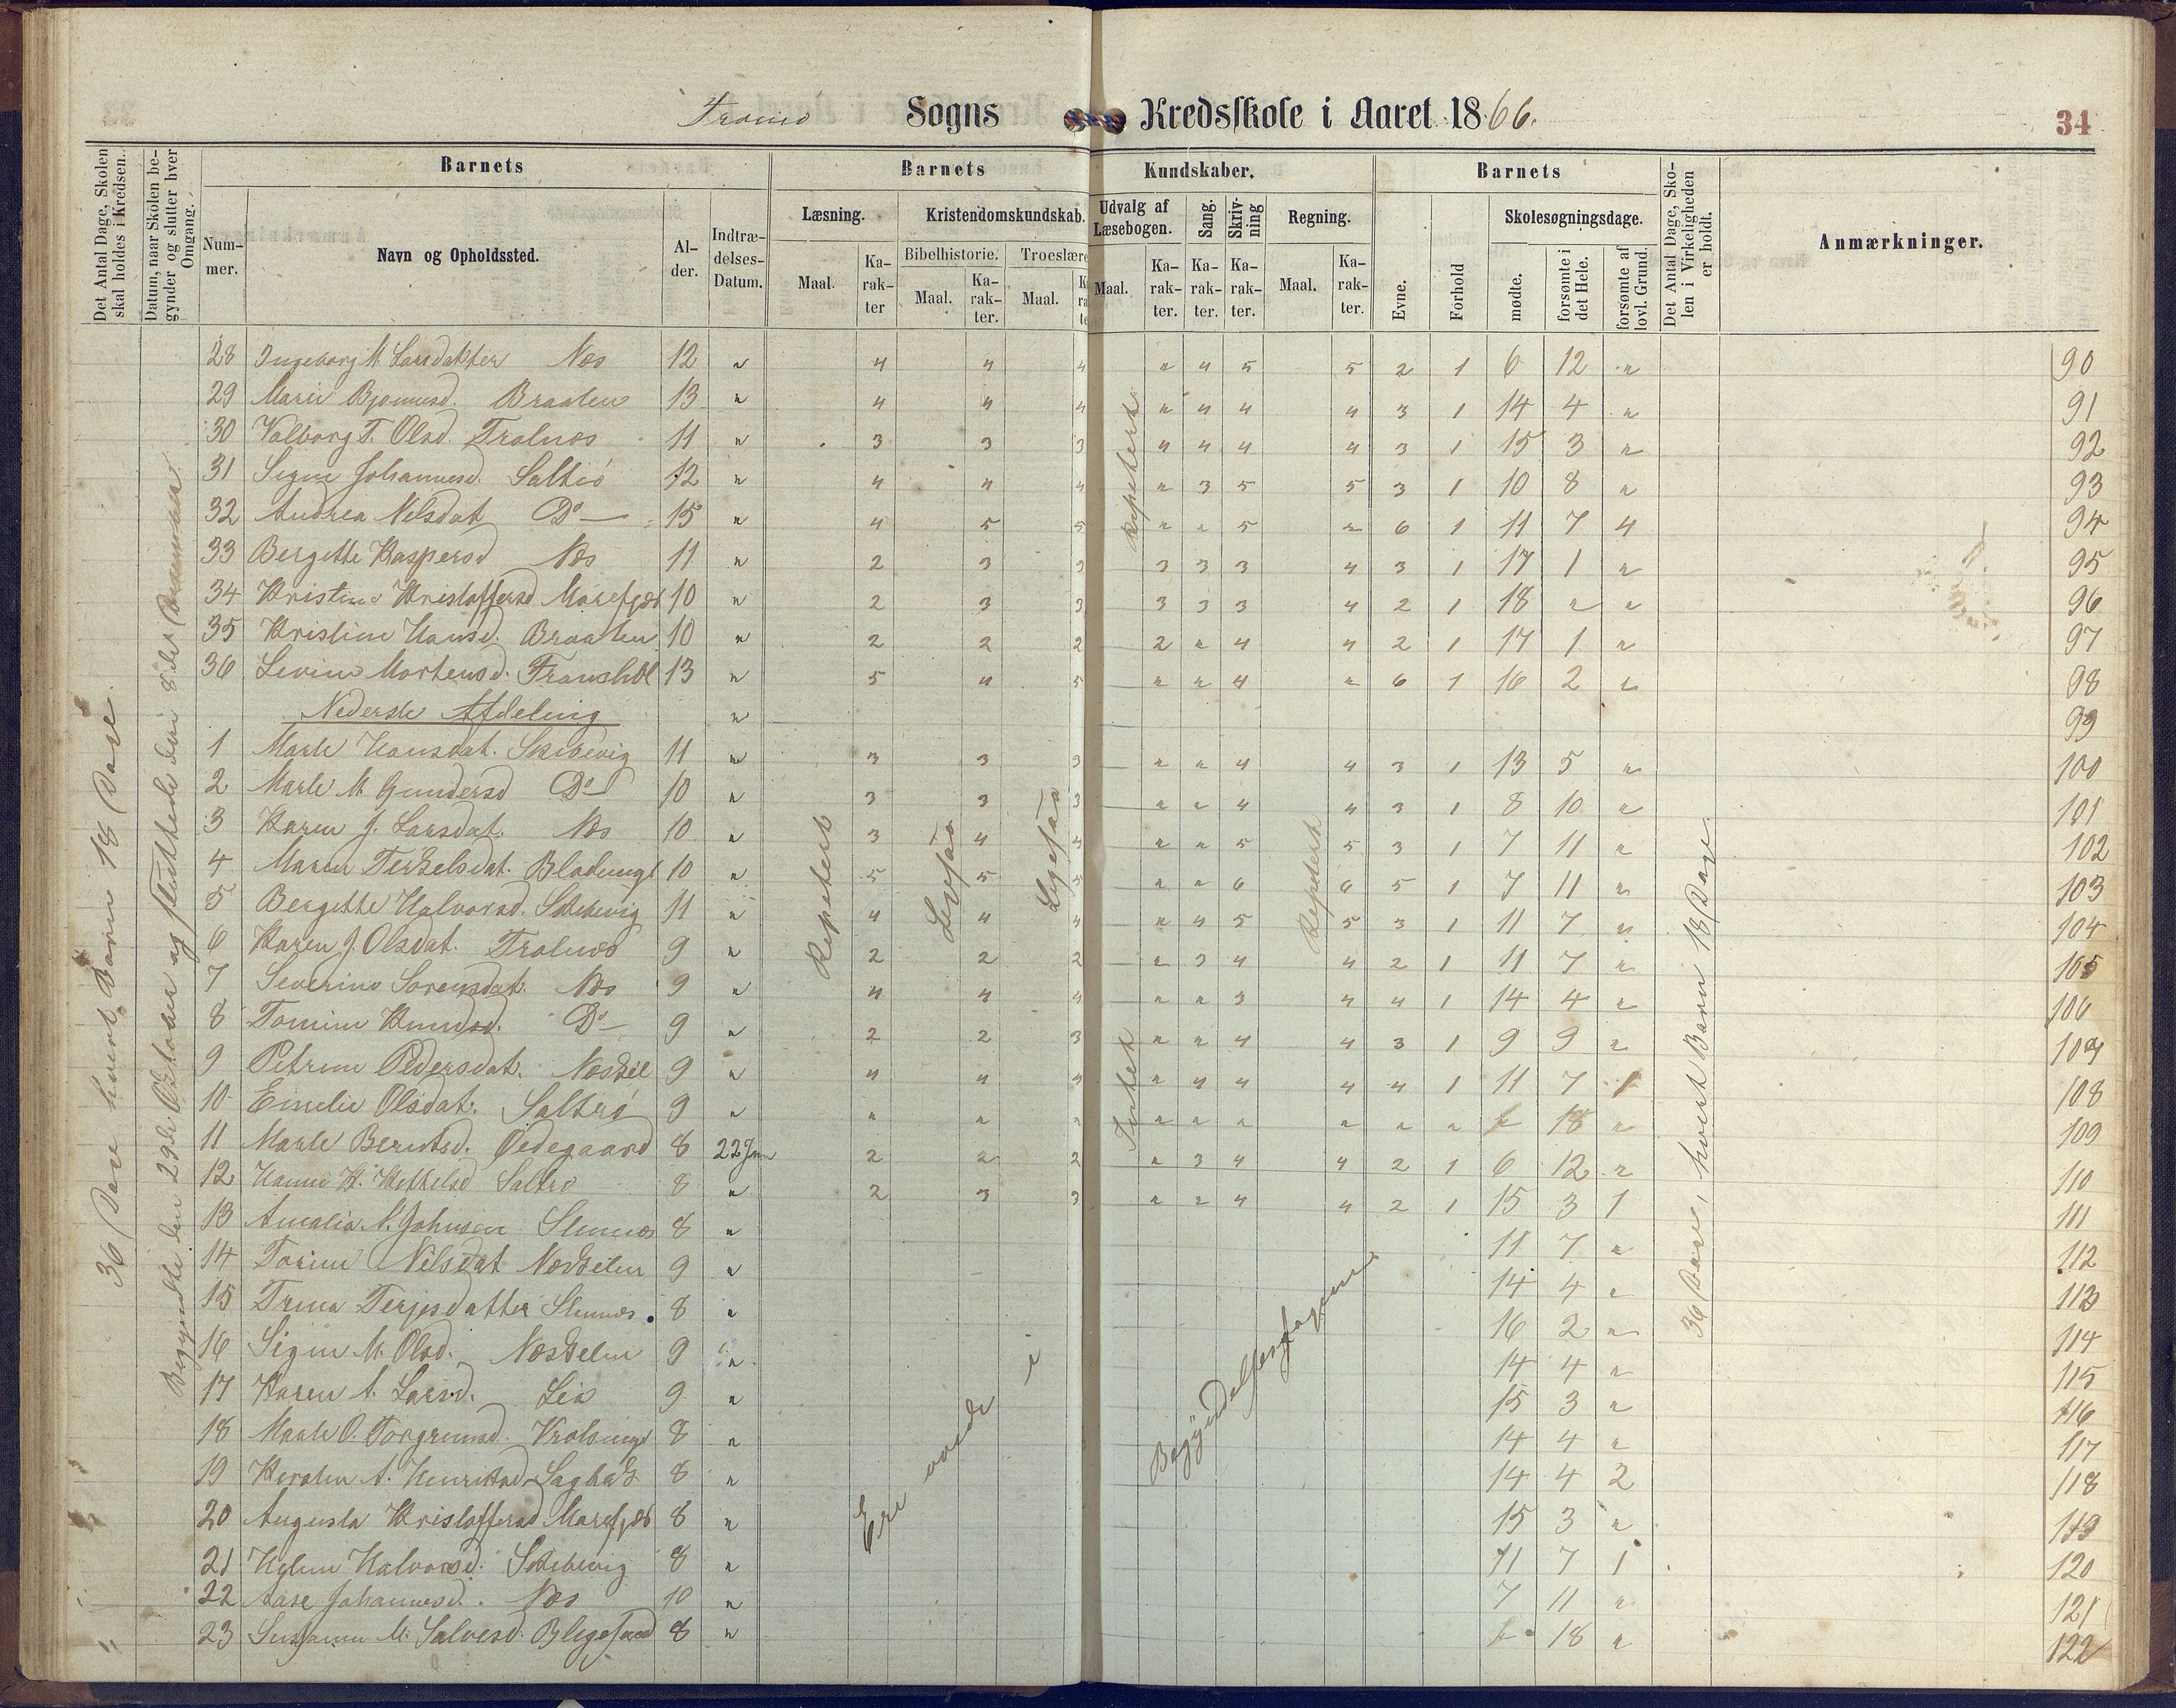 Tromø Sogns Kredsskole i Aaret 1866.
34
Det Antal Dage, Skolen skal holdes i Kredsen.
Datum, naar Skolen begynder og slutter hver Omgang.
Barnets
Barnets Kundskaber.
Barnets
Det Antal Dage, Skolen i Virkeligheden er holdt.
Anmærkninger.
Nummer.
Navn og Opholdssted.
Alder.
Indtrædelses-Datum.
Læsning.
Kristendomskundskab.
Udvalg af Læsebogen.
Sang.
Skrivning
Regning.
Evne.
Forhold
Skolesøgningsdage.
Bibelhistorie.
Troeslære
Maal.
Karakter
Maal.
Karakter.
Maal.
Maal.
Karakter.
Karakter.
Karakter.
Maal.
Karakter.
mødte.
forsømte i det Hele.
forsømte af lovl. Grund.
28 Ingeborg M. Larsdatter Næs 12 " 4 4 4 " 4 5 5 2 1 6 12 " 90
29 Maren Bjornusd. Braaten 13 " 4 4 4 " 4 4 4 3 1 14 4 " 91
30 Valborg T. Olsd. Tralnæs 11 " 3 3 3 4 4 4 4 3 1 15 3 " 92
31 Signe Johannesd. Saltrø 12 " 4 4 4 " 3 5 5 3 1 10 8 " 93
32 Andrea Nilsdat Do 15 " 4 5 5 " " 5 " 6 1 11 7 4 94
33 Bergette Kaspersd Næs 11 " 2 3 3 3 3 3 4 3 1 17 1 " 95
34 Kristine Kristoffersd Marefjæd 10 " 2 3 3 3 3 3 4 2 1 18 " " 96
35 Kristine Hansd. Braaten 10 " 2 2 2 2 " 4 4 2 1 17 1 " 97
36 Levine Mortensd. 13 " 5 4 5 " " 4 " 6 1 16 2 " 98
Nederste Afdeling " 99
1 Marte Hansdat. Skibevig 11 " 3 3 3 " " 4 4 3 1 13 5 " 100
2 Marte M. Gundersd Do 10 " 3 3 3 " " 4 4 3 1 8 10 " 101
3 Karen J. Larsdat. Næs 10 " 3 4 4 " " 5 5 3 1 7 11 " 102
4 Maren Terkelsdat. 10 " 5 5 5 " " 6 6 5 1 7 11 " 103
5 Bergette Halvorsd. Skibevig 11 " 4 4 4 " 4 5 5 3 1 11 7 " 104
6 Karen J. Olsdat. Tralnæs 9 " 2 2 2 " 3 4 4 2 1 11 7 " 105
7 Severine Sorensdat. Næs 9 " 4 4 4 " " 3 4 4 1 14 4 " 106
8 Tomine Knudsd. Do 9 " 2 2 3 " " 4 4 3 1 9 9 " 107
9 Petrine Pedersdat. Næskil 9 " 4 4 4 " 4 4 4 4 1 11 7 1 108
10 Emelie Olsdat. Saltrø 9 " " " " " " " " " " " 18 " 109
11 Marte Berntsd. Ødegaard 8 22 Jan 2 2 2 " 3 4 4 2 1 6 12 " 110
12 Hanne K. Kettelsd Saltrø 8 " 2 3 3 " " 4 4 2 1 15 3 1 111
13 Amalia N. Johnsen 8 " 11 7 " 112
14 Torine Nilsdat Næskilen 9 " 14 4 " 113
15 Trina Terjesdatter 8 " 16 2 " 114
16 Signe M. Olsd. Næskilen 9 " 14 4 " 115
17 Karen A. Larsd. Lia 9 " 15 3 " 116
18 Marte O. Torgrimsd. 8 " 14 4 " 117
19 A. Henriksd 8 " 14 4 2 118
20 Augusta Kristoffersd Marefjæd 8 " 15 3 " 119
21 Helene Halvorsd. Skibevig 8 " 11 7 1 120
22 Aase Johannesd. Næs 10 " 7 11 " 121
23 M. Salvesd. 8 " " 18 " 122
36 Dage hvert Barn 18 Dage.
Begyndte den 29de Oktober og sluttede den 8de
Repetert
Ligesaa
Ligesaa
Repetert
Intet
Repetert
Ere øvede i Begyndelsesfagene.
36 Dage, hvert Barn 18 Dage.